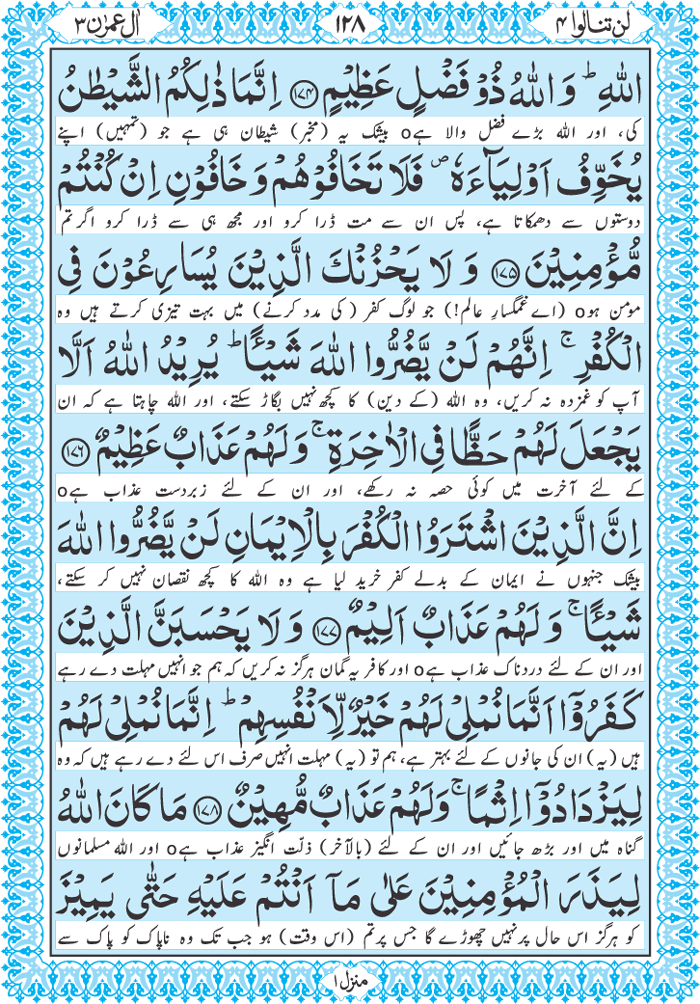 اٰل عمرٰن ٣
١٢٨
لن تنالوا ٤
اللّٰهِ ؕ وَ اللّٰهُ ذُوْ فَضْلٍ عَظِیْمٍ ﴿۱۷۴﴾ اِنَّمَا ذٰلِكُمُ الشَّیْطٰنُ
کی، اور اللہ بڑے فضل والا ہےo بیشک یہ (مخبر) شیطان ہی ہے جو (تمہیں) اپنے
یُخَوِّفُ اَوْلِیَآءَهٗ ۪ فَلَا تَخَافُوْهُمْ وَ خَافُوْنِ اِنْ كُنْتُمْ
دوستوں سے دھمکاتا ہے، پس ان سے مت ڈرا کرو اور مجھ ہی سے ڈرا کرو اگر تم
مُّؤْمِنِیْنَ ﴿۱۷۵﴾ وَ لَا یَحْزُنْكَ الَّذِیْنَ یُسَارِعُوْنَ فِی
مومن ہوo (اے غمگسارِ عالم!) جو لوگ کفر (کی مدد کرنے) میں بہت تیزی کرتے ہیں وہ
الْكُفْرِ ۚ اِنَّهُمْ لَنْ یَّضُرُّوا اللّٰهَ شَیْـًٔا ؕ یُرِیْدُ اللّٰهُ اَلَّا
آپ کو غمزدہ نہ کریں، وہ اللہ (کے دین) کا کچھ نہیں بگاڑ سکتے، اور اللہ چاہتا ہے کہ ان
یَجْعَلَ لَهُمْ حَظًّا فِی الْاٰخِرَةِ ۚ وَ لَهُمْ عَذَابٌ عَظِیْمٌ ﴿۱۷۶﴾
کے لئے آخرت میں کوئی حصہ نہ رکھے، اور ان کے لئے زبردست عذاب ہےo
اِنَّ الَّذِیْنَ اشْتَرَوُا الْكُفْرَ بِالْاِیْمَانِ لَنْ یَّضُرُّوا اللّٰهَ
بیشک جنہوں نے ایمان کے بدلے کفر خرید لیا ہے وہ اللہ کا کچھ نقصان نہیں کر سکتے،
شَیْـًٔا ۚ وَ لَهُمْ عَذَابٌ اَلِیْمٌ ﴿۱۷۷﴾ وَ لَا یَحْسَبَنَّ الَّذِیْنَ
اور ان کے لئے دردناک عذاب ہےo اور کافر یہ گمان ہرگز نہ کریں کہ ہم جو انہیں مہلت دے رہے
كَفَرُوْۤا اَنَّمَا نُمْلِیْ لَهُمْ خَیْرٌ لِّاَنْفُسِهِمْ ؕ اِنَّمَا نُمْلِیْ لَهُمْ
ہیں (یہ) ان کی جانوں کے لئے بہتر ہے، ہم تو (یہ) مہلت انہیں صرف اس لئے دے رہے ہیں کہ وہ
لِیَزْدَادُوْۤا اِثْمًا ۚ وَ لَهُمْ عَذَابٌ مُّهِیْنٌ ﴿۱۷۸﴾ مَا كَانَ اللّٰهُ
گناہ میں اور بڑھ جائیں اور ان کے لئے (بالآخر) ذلّت انگیز عذاب ہےo اور اللہ مسلمانوں
لِیَذَرَ الْمُؤْمِنِیْنَ عَلٰی مَاۤ اَنْتُمْ عَلَیْهِ حَتّٰی یَمِیْزَ
کو ہرگز اس حال پر نہیں چھوڑے گا جس پر تم (اس وقت) ہو جب تک وہ ناپاک کو پاک سے
منزل ١